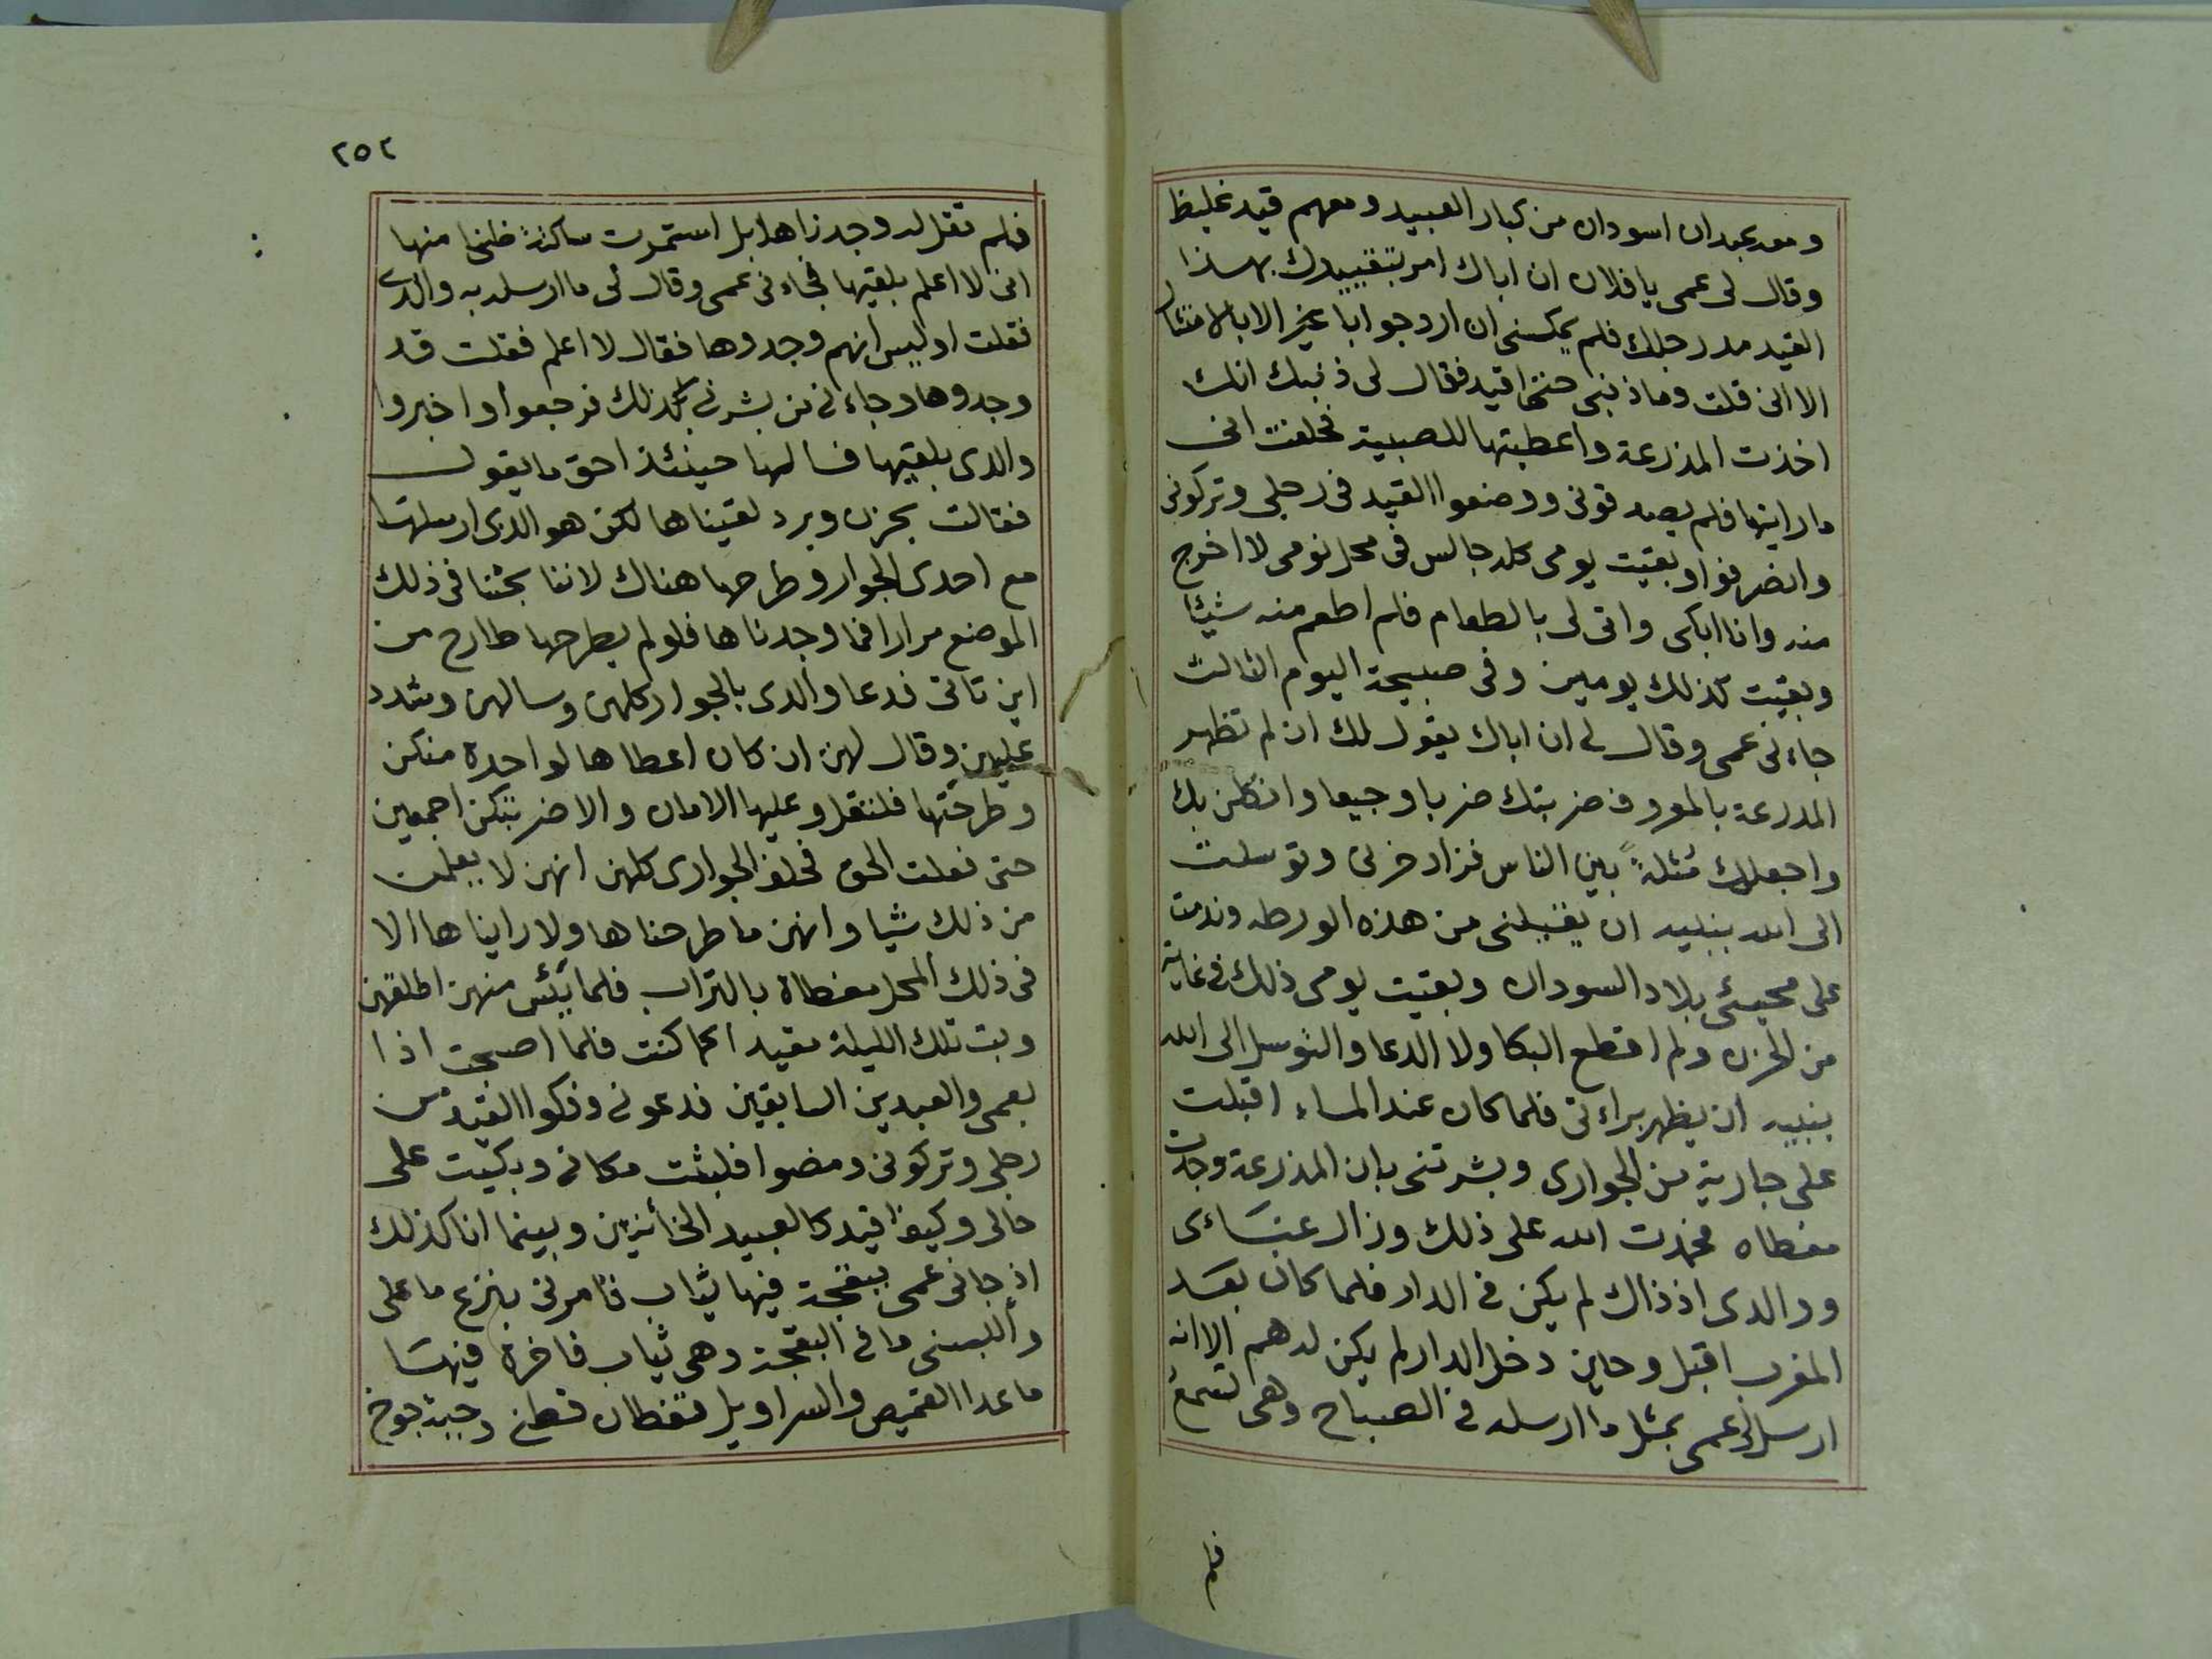 ومعه عبدان اسودان من كبار العبيد ومعهم قيد غليظ
وقال لى عمى يا فلان ان اباك امر بتقييدك بهذا
القيد مد رجلك فلم يمكننى ان ارد جوابا غير الا بالامتثال
الا انى قلت وما ذنبى حتى اقيد فقال لى ذنبك انك
اخذت المذرعة واعطيتها للصبية فحلفت انى
ما رايتها فلم يصدقونى ووضعوا القيد فى رجلى وتركونى
وانصرفوا وبقيت يومى كله جالس فى محل نومى لا اخرج
منه وانا ابكى واتى لى بالطعام فلم اطعم منه شيئا
وبقيت كذلك يومين وفى صبيحة اليوم الثالث
جاءنى عمى وقال لى ان اباك يقول لك ان لم تظهر
المدرعة بالمعروف ضربتك ضربا وجيعا وانكلن بك
واجعلك مُثلةً بين الناس فزاد حزنى وتوسلت
الى الله بنبيه ان يقيلنى من هذه الورطه وندمت
على مجيئى بلاد السودان وبقيت يومى ذلك فى غاية
من الحزن ولم اقطع البكا ولا الدعا والتوسل الى الله
بنبيه ان يظهر براءتى فلما كان عند المساء اقبلت
على جارية من الجوارى وبشرتنى بان المذرعة وجدت
مغطاه فحمدت الله على ذلك وزال عناءى
ووالدى اذ ذاك لم يكن فى الدار فلما كان بعد
المغرب اقبل وحين دخل الدار لم يكن له هم الا انه
ارسل لى عمى بمثل ما ارسله فى الصباح وهى تسمع
فلم
٢٥٢
فلم تقل له وجدناها بل استمرت ساكتة ظنا منها
انى لا اعلم بلقيتها فجاءنى عمى وقال لى ما ارسله به والدى
فقلت اوليس انهم وجدوها فقال لا اعلم فقلت قد
وجدوها وجاءنى من بشرنى بذلك فرجعوا واخبروا
والدى بلقيتها فسالها حينئذ احق ما يقول
فقالت بحزن وبرد لقيناها لكن هو الذى ارسلها
مع احدى الجوار وطرحها هناك لاننا بحثنا فى ذلك
الموضع مرارا فما وجدناها فلو لم يطرحها طارح من
اين تاتى فدعا والدى بالجوار كلهن وسالهن وشدد
عليهن وقال لهن ان كان اعطاها لواحدة منكن
وطرحتها فلتقل وعليها الامان والا ضربتكن اجمعين
حتى نعلت الحق فحلف الجوارى كلهن انهن لا يعلمن
من ذلك شيا وانهن ما طرحناها ولا رايناها الا
فى ذلك المحل مغطاة بالتراب فلما يئس منهن اطلقهن
وبت تلك الليلة مقيدا كما كنت فلما اصبحت اذا
بعمى والعبدين السابقين فدعونى وفكوا القيد من
رجلى وتركونى ومضوا فلبثت مكانى وبكيت على
حالى وكيف اقيد كالعبيد الخائنين وبينما انا كذلك
اذ جانى عمى ببقجة فيها ثياب فامرنى بنزع ما على
وألبسنى ما فى البقجة وهى ثياب فاخرة فيها
ما عدا القميص والسراويل قفطان قطنى وجبة جوخ